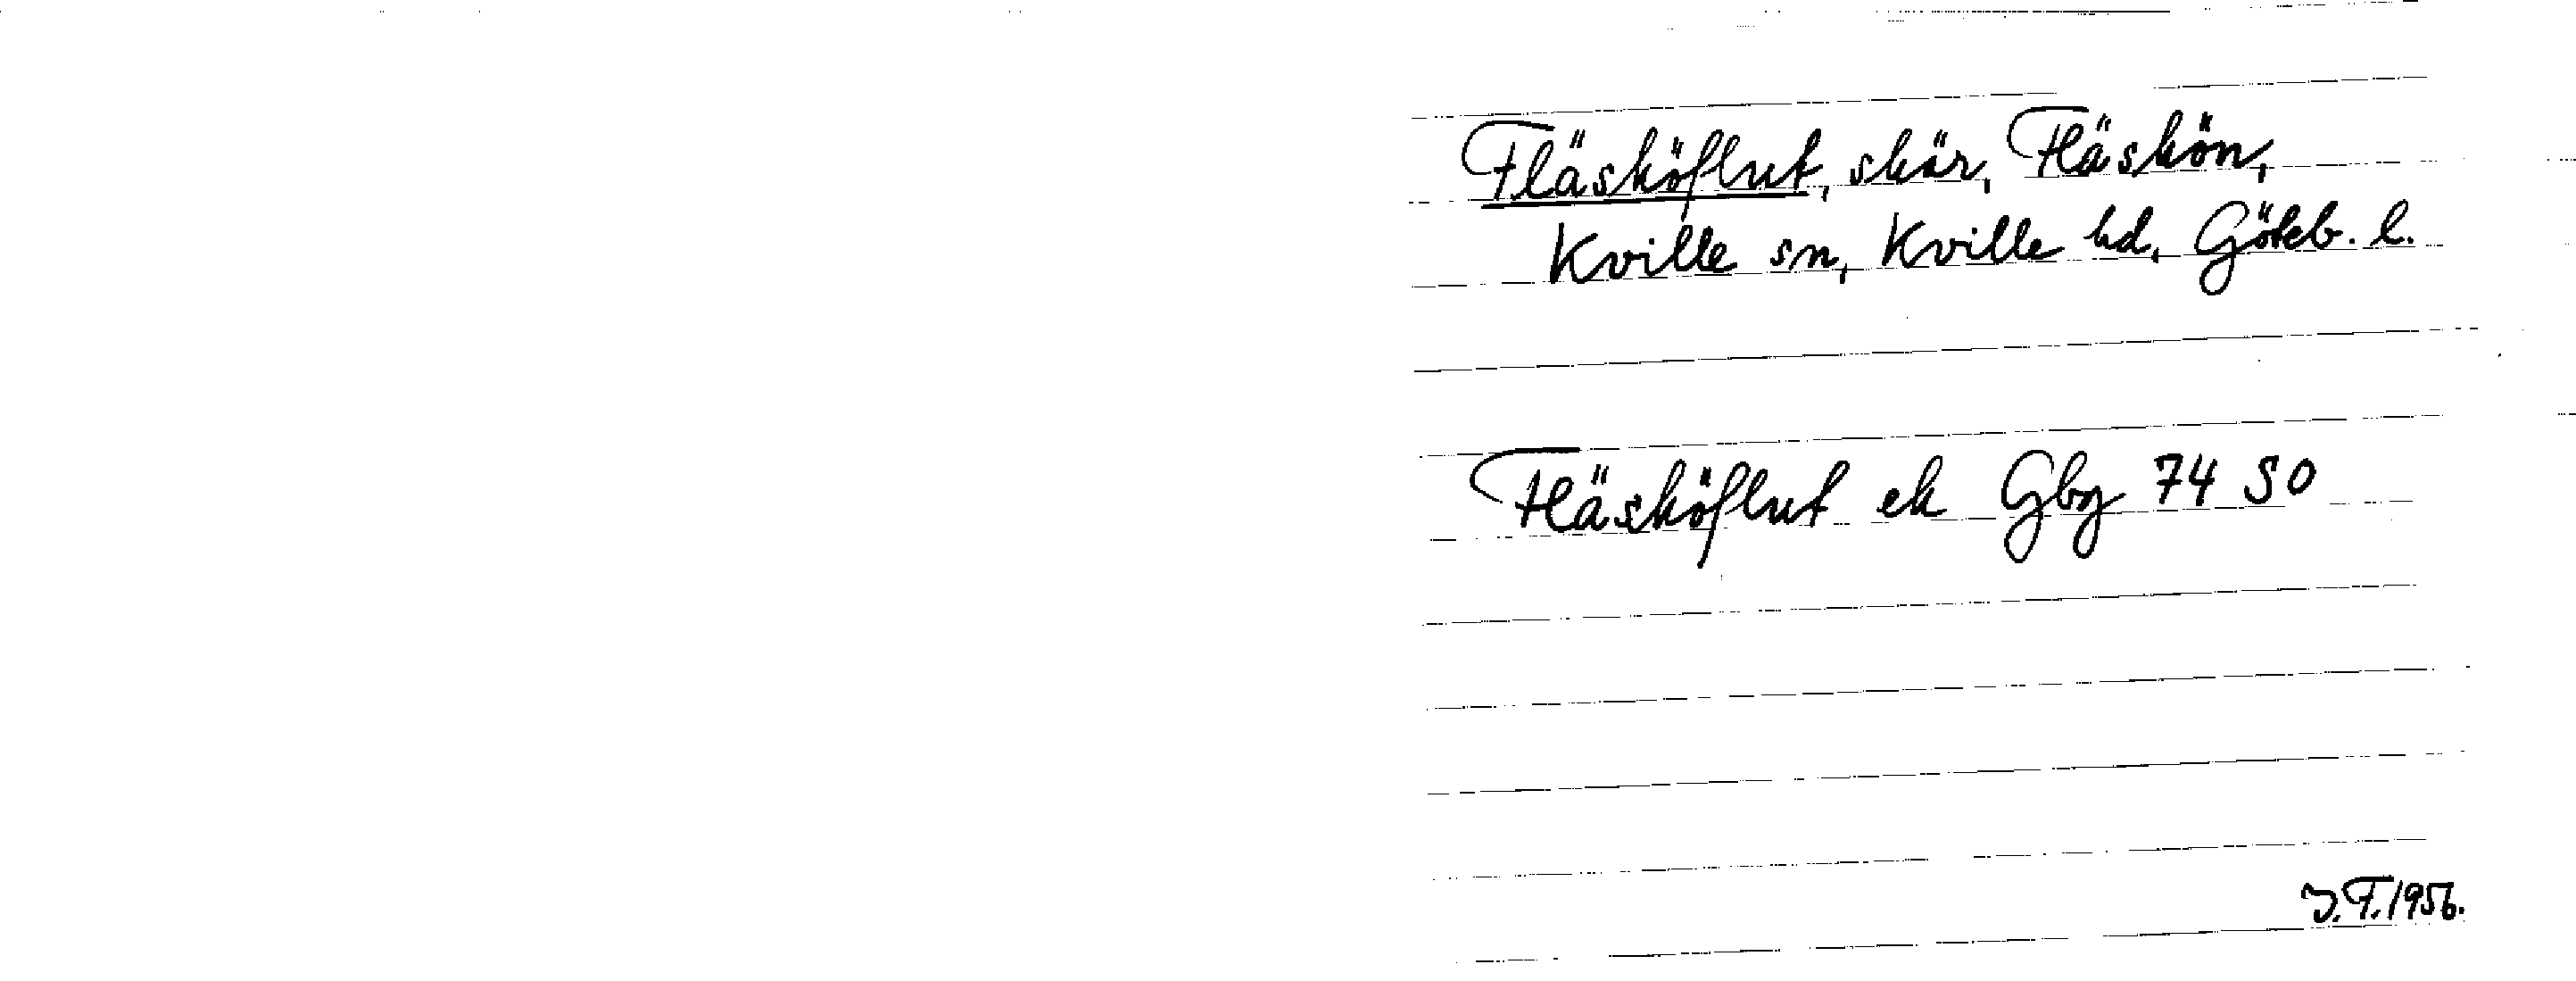 Fläsköflut, skär, Fläskön,
Kville sn, Kville hd, Göteb. l.
Fläsköflut ek Gbg 74 SO
J.F. 1956.